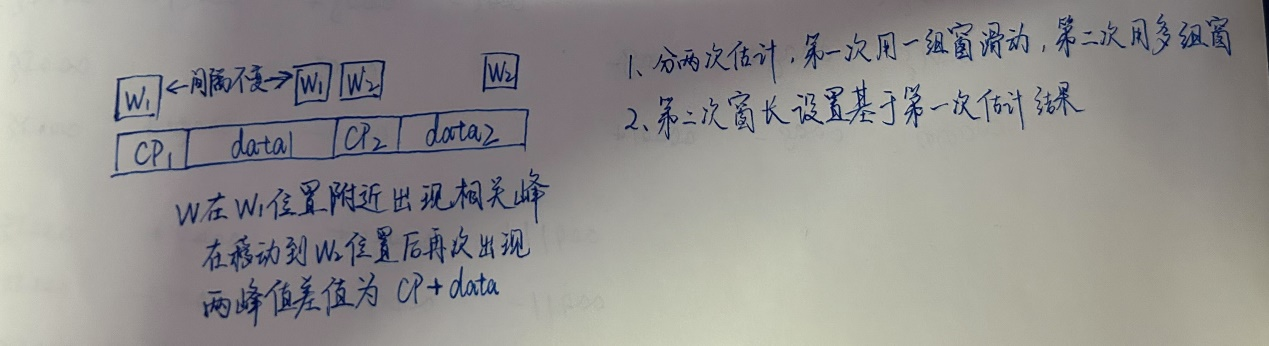 W₁ ←间隔不变→ W₁ W₂ W₂
CP₁ data1 CP₂ data2
W在W₁位置附近出现相关峰
在移动到W₂位置后再次出现
两峰值差值为 CP+data
1、分两次估计，第一次用一组窗滑动，第二次用多组窗
2、第二次窗长设置基于第一次估计结果